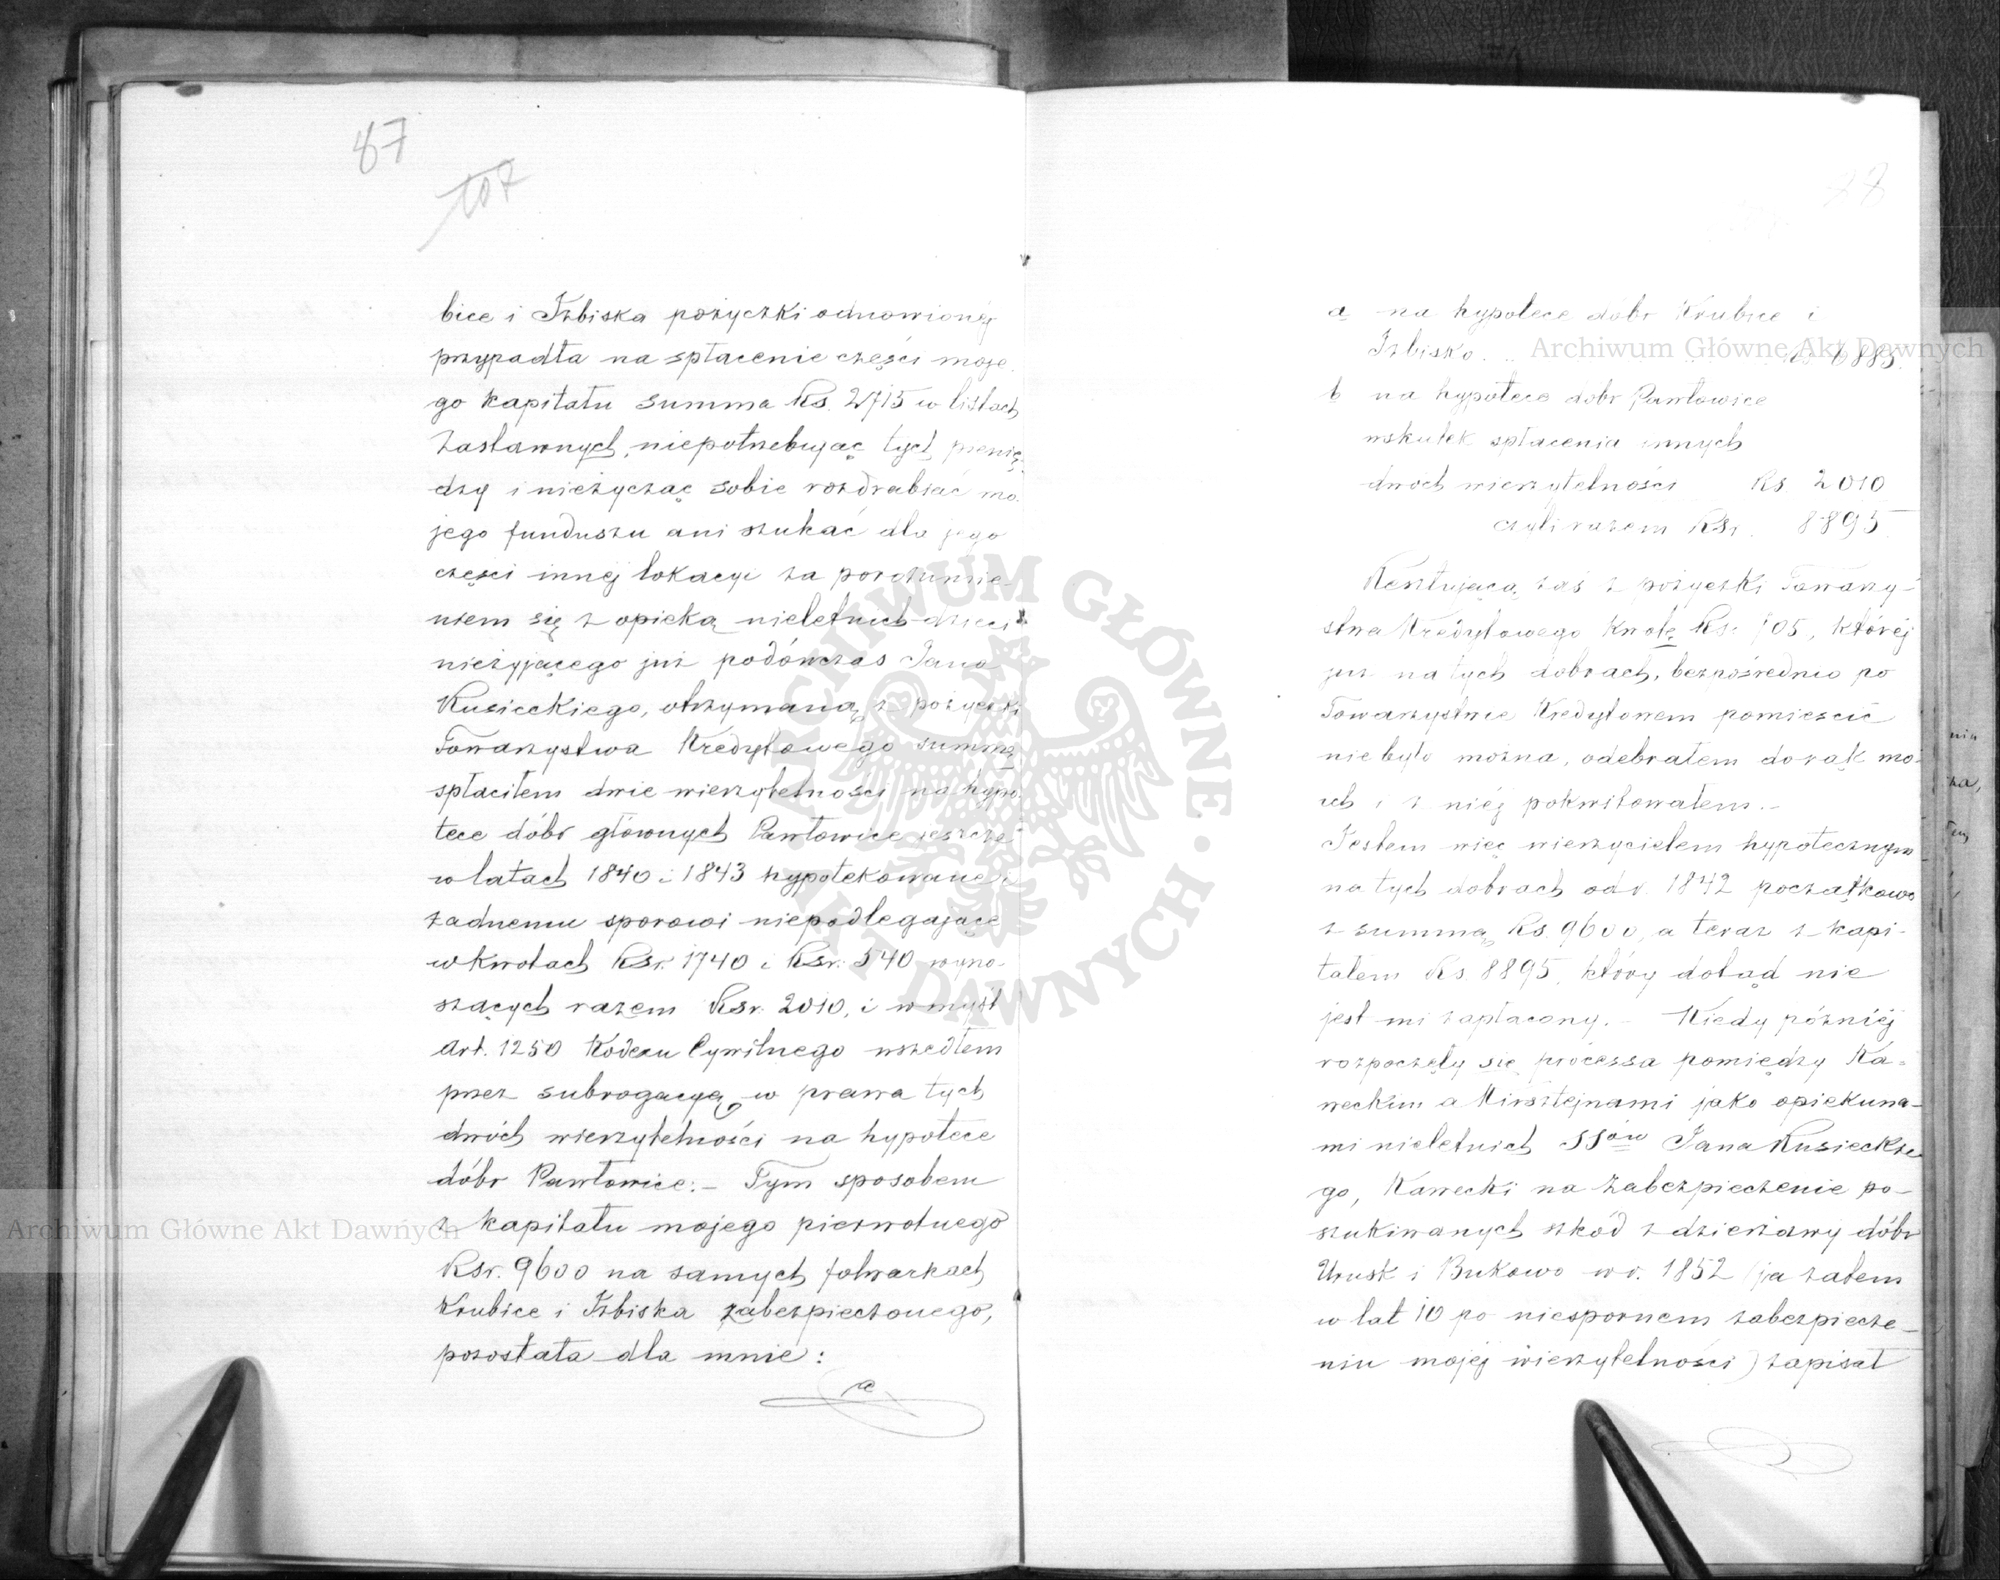 87
107
bice i Izbiska pożyczki odnowionéj
przypadła na spłacenie części moje
go kapitału summa Rs. 2715 w listach
Zastawnych, niepotrzebując tych pienię
dzy i nieżycząc sobie rozdrabiać mo
jego funduszu ani szukać dla jego
części innej lokacyi za porozumie-
niem się z opieką nieletnich dzieci
nieżyjącego już podówczas Jana
Kusieckiego, otrzymaną z pożyczki
Towarzystwa Kredytowego summą
spłaciłem dwie wierzytelności na hypo
tece dóbr głównych Pawłowice jeszcze
w latach 1840 i 1843 hypotekowane i
żadnemu sporowi niepodlegające
w kwotach Rsr. 1740 i Rsr. 540 wyno-
szących razem Rsr. 2010, i w myśl
Art. 1250 Kodexu Cywilnego wszedłem
przez subrogacyą w prawa tych
dwóch wierzytelności na hypotece
dóbr Pawłowice.- Tym sposobem
z kapitału mojego pierwotnego
Rsr. 9600 na samych folwarkach
Krubice i Izbiska zabezpieczonego,
pozostała dla mnie:
a
a na hypotece dóbr Krubice i
Izbisko. .. Rs 6885.
b na hypotece dobr Pawłowice
wskutek spłacenia innych
dwóch wierzytelności Rs 2010
czyli razem RSr. 8895.
Resztującą zaś z pożyczki Towarzy-
stwa Kredytowego kwotę Rs. 705, któréj
już na tych dobrach, bezpośrednio po
Towarzystwie Kredytowem pomieścić
nie było można, odebrałem do rąk mo
ich i z niéj pokwitowałem.-
Jestem więc wierzycielem hypotecznym
na tych dobrach od r. 1842 początkowo
z summą Rs. 9600, a teraz z kapi-
tałem Rs 8895, który dotąd nie
jest mi zapłacony.- Kiedy późniéj
rozpoczęły się processa pomiędzy Ka-
weckim a Kirsztejnami jako opiekuna-
mi nieletnich SSów Jana Kusieckie
go, Kawecki na zabezpieczenie po-
szukiwanych szkód z dzierżawy dóbr
Urusk i Bukowo w r. 1852 (ja zatem
w lat 10 po niespornem zabezpiecze-
niu mojej wierzytelności) zapisał
Archiwum Główne Akt Dawnych
Archiwum Główne Akt Dawnych
ARCHIWUM GŁÓWNE AKT DAWNYCH